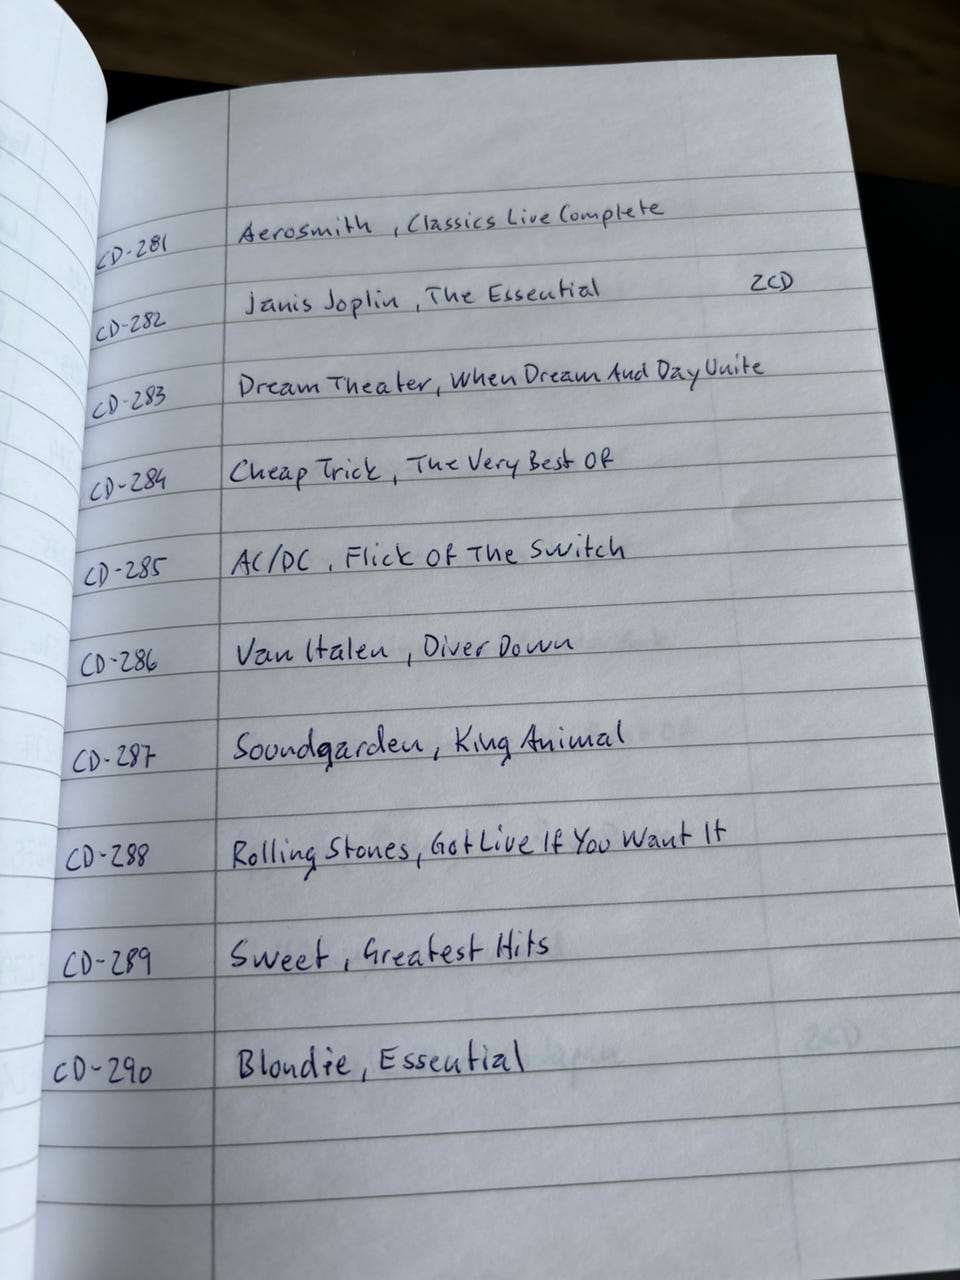 CD-281 Aerosmith, Classics Live Complete
CD-282 Janis Joplin, The Essential 2CD
CD-283 Dream Theater, When Dream And Day Unite
CD-284 Cheap Trick, The Very Best Of
CD-285 AC/DC, Flick Of The Switch
CD-286 Van Halen, Diver Down
CD-287 Soundgarden, King Animal
CD-288 Rolling Stones, Got Live If You Want It
CD-289 Sweet, Greatest Hits
CD-290 Blondie, Essential